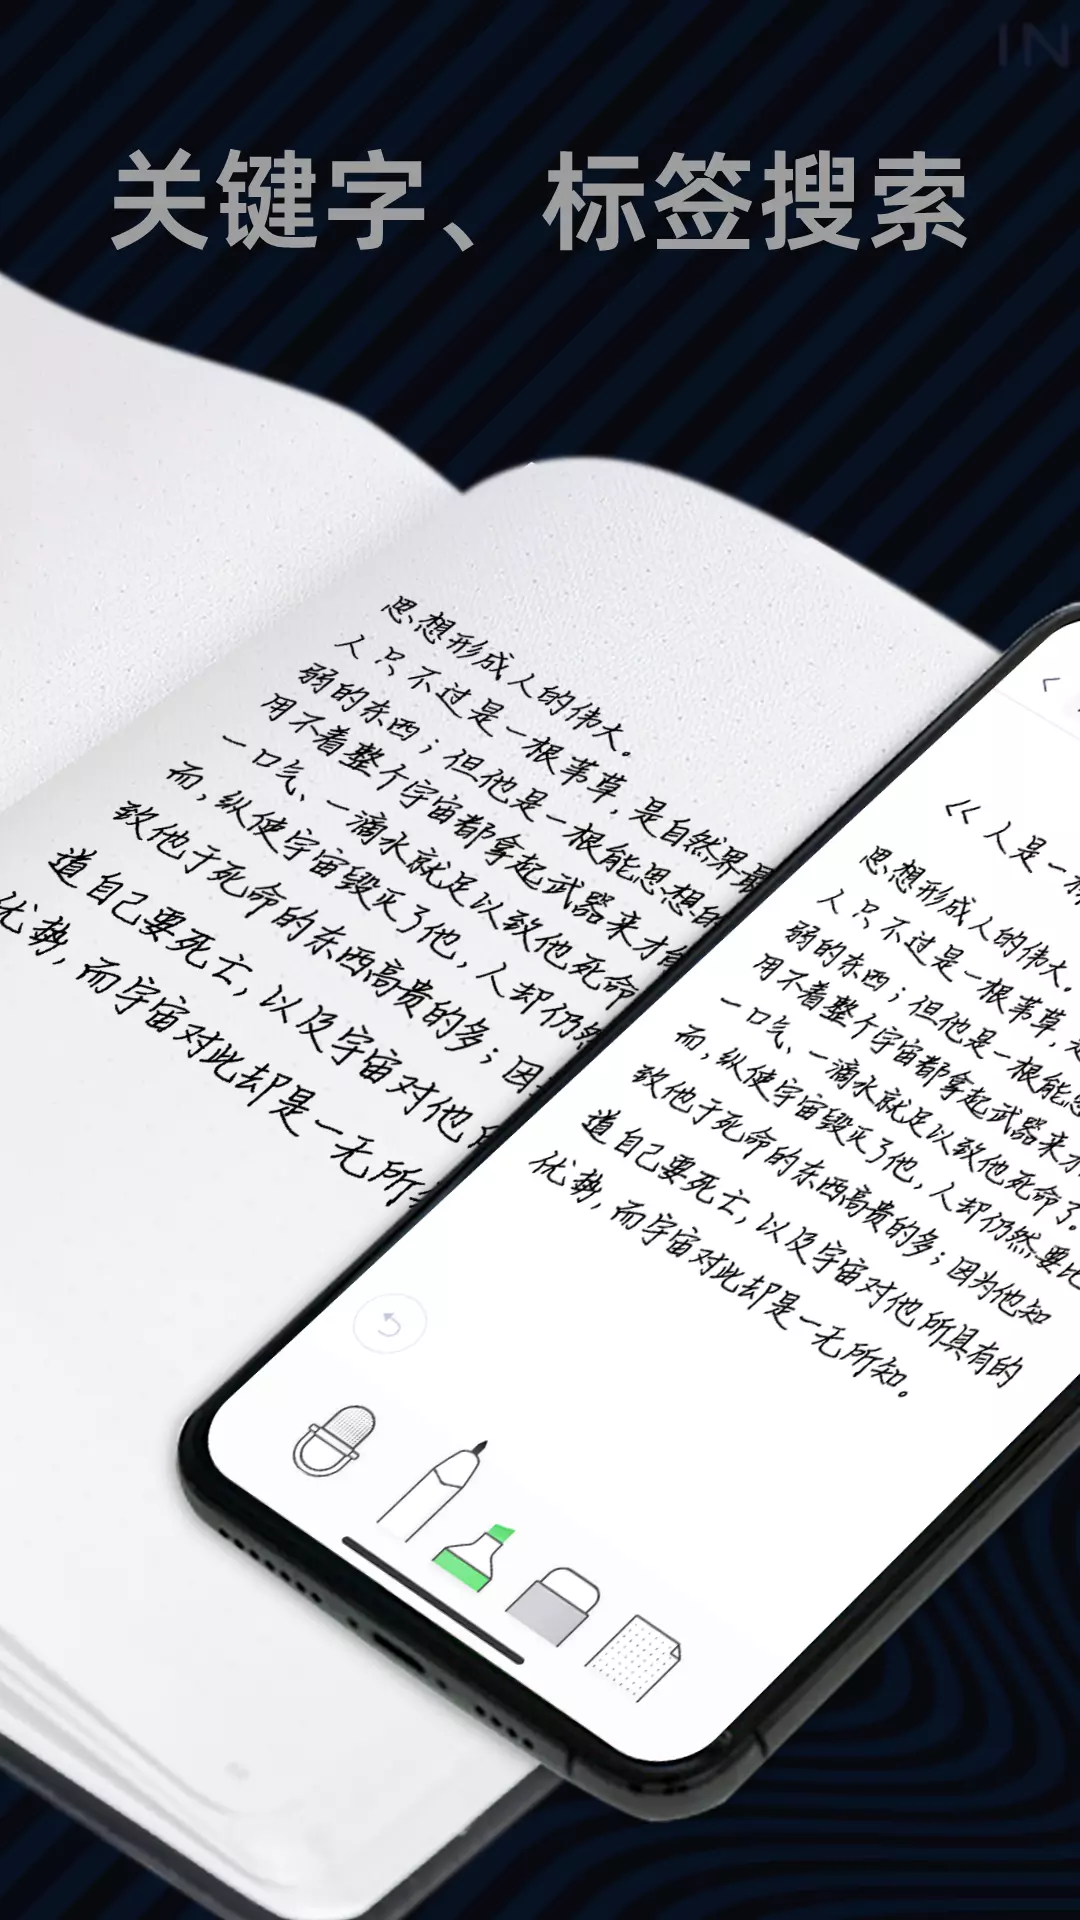 IN
关键字、标签搜索
思想形成人的伟大。
人只不过是一根苇草，是自然界最
弱的东西；但他是一根能思想的
用不着整个宇宙都拿起武器来才能
一口气、一滴水就足以致他死命
而，纵使宇宙毁灭了他，人却仍然
致他于死命的东西高贵的多；因
道自己要死亡，以及宇宙对他
优势，而宇宙对此却是一无所
<
《人是一根
思想形成人的伟大。
人只不过是一根苇草，是
弱的东西；但他是一根能思
用不着整个宇宙都拿起武器来才
一口气、一滴水就足以致他死命了。
而，纵使宇宙毁灭了他，人却仍然要比
致他于死命的东西高贵的多；因为他知
道自己要死亡，以及宇宙对他所具有的
优势，而宇宙对此却是一无所知。